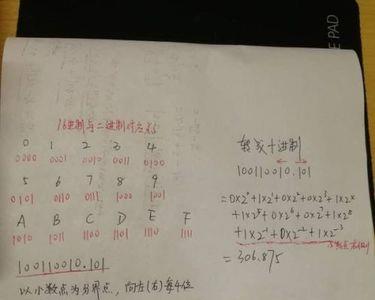 PAD
16进制与二进制对应表
0 1 2 3 4
0000 0001 0010 0011 0100
5 6 7 8 9
0101 0110 0111 1000 1001
A B C D E F
1010 1011 1100 1101 1110 1111
100110010.101
以小数点为分界点，向左(右)每4位
转成十进制
100110010.101
=0×2⁰+1×2¹+0×2²+0×2³+1×2⁴
+1×2⁵+0×2⁶+0×2⁷+1×2⁸
+1×2⁻¹+0×2⁻²+1×2⁻³
=306.875